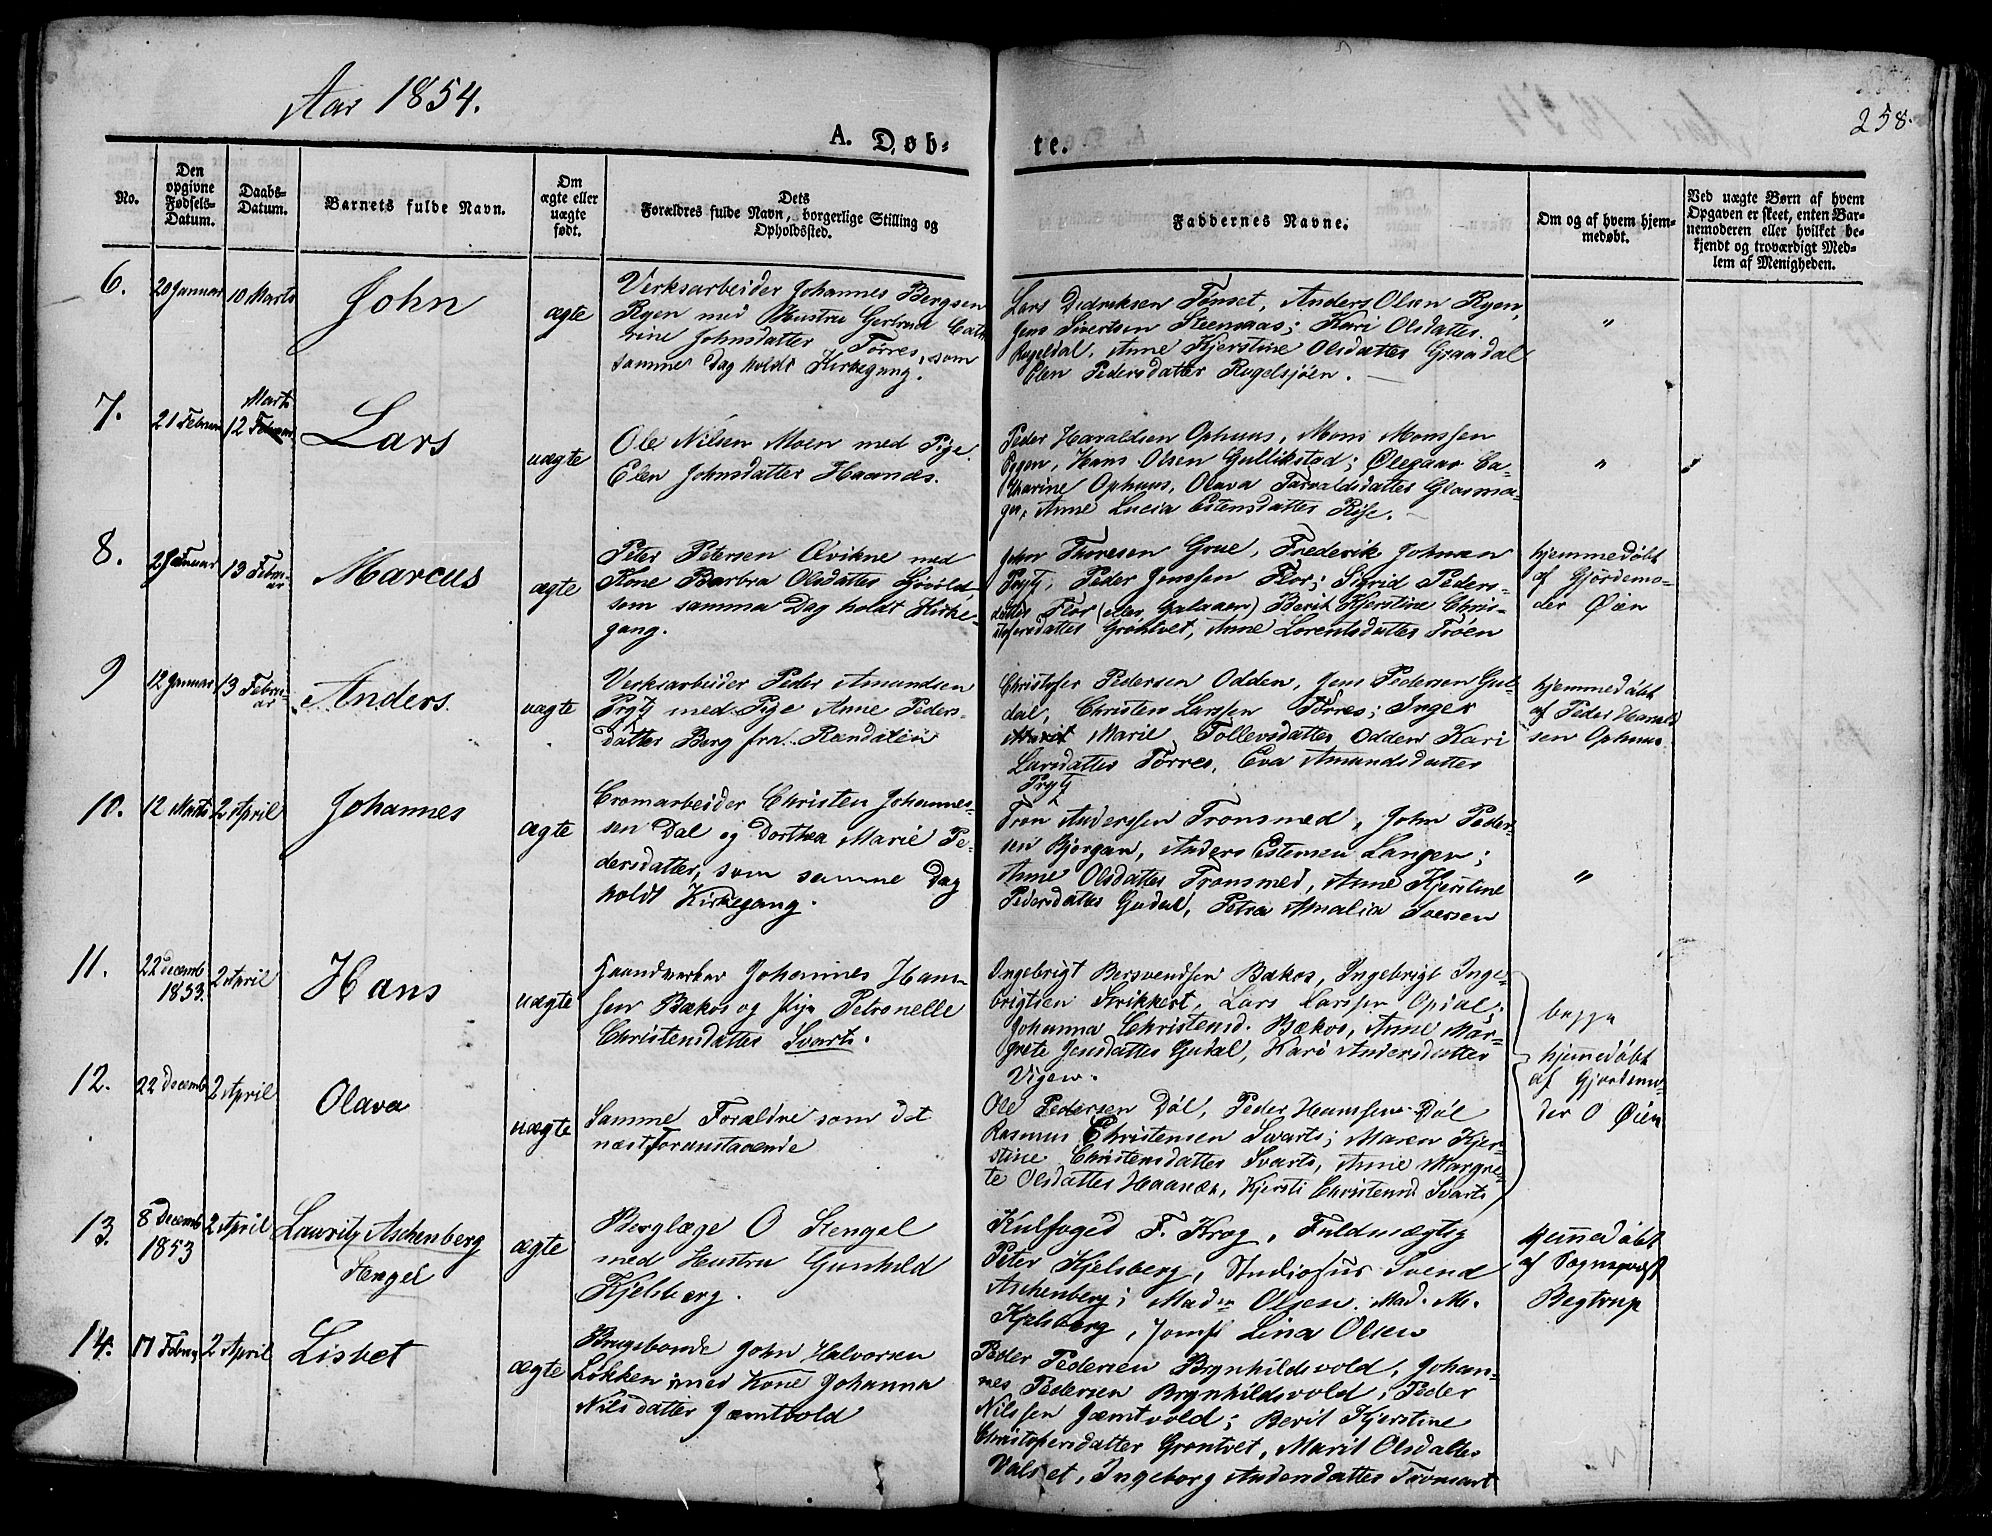 Aar 1854.
258.
A. Døb-
te.
No.
Den opgivne Fødsels-Datum.
Daabs-Datum.
Barnets fulde Navn.
Om ægte eller uægte født.
Dets Forældres fulde Navn, borgerlige Stilling og Opholdssted.
Faddernes Navne.
Om og af hvem hjem-medøbt.
Ved uægte Børn af hvem Opgaven er skeet, enten Bar-nemoderen eller hvilket be-kjendt og troværdigt Med-lem af Menigheden.
6. 20 Januar 10 Marts John ægte
Verksarbeider Johannes Bergsen
Ryen med Hustru Gertrud Cath
rine Johnsdatter Torres, som
samme Dag holdt Kirkegang.
Lars Dedriksen Tønset, Anders Olsen Ryen,
Jens Sivertsen Steenaas; Kari Olsdatter
Rugeldal, Anne Kjerstine Olsdatter Graadal
Elen Pedersdatter Rugelsjöen.
"
7. 21 Februar Marts 12 Lars uægte
Ole Nilsen Moen med Pige
Elen Johnsdatter Haanes.
Peder Haraldsen Ophuus, Mons Monssen
Hans Olsen Gullikstad; Olegaar Ca-
tharine Ophuus, Olava Tarvaldsdatter Glasma-
ger, Anne Lucia Estensdatter Rise.
"
8. Januar 13 Febru-ar Marcus ægte
Peter Petersen Qvikne med
Kone Barbra Olsdatter
som samma Dag holdt Kirke-
gang.
John Thoresen Grue, Frederik Johnsen
Prytz, Peder Jenssen Flor; Sigrid Peders-
datter Flor (eller Galaaen) Berit Kjerstine Chris-
tofersdatter Grøntvet, Anne Lorentsdatter Trøen
hjemmedøbt
af Gjordemo-
der Øien
9 12 Januar 13 Febru-ar Anders. uægte
Verksarbeider Peder Amundsen
Prytz med Pige Anne Peders-
datter Berg fra Rendalen
Christofer Pedersen Odden, Jens Pedersen Gul-
dal, Christen Larssen Torres; Inger
Marie Tollevsdatter Odden Kari
Larsdatter Torres, Eva Amundsdatter
Prytz
hjemmedøbt
af Peder Harald
sen Ophuus.
10. 12 Marts 2 April Johannes ægte
Cromarbeider Christen Johannes-
sen Dal og Dorthea Marie Pe-
dersdatter, som samme Dag
holdt Kirkegang.
Tron Anderssen Tronsmed, John Peder-
sen Bjorgan, Anders Estensen Langen;
Anne Olsdatter Tronsmed, Anne Kjerstine
Pedersdatter Gudal, Petra Amalia Iversen
"
11. 22 Decemb 1853. 2 April Hans uægte
Haandverker Johannes Han-
sen Bækos og Pige Petronelle
Christensdatter Svarts.
Ingebrigt Bersvendsen Bækos, Ingebrigt Inge-
brigtsen Strikkert, Lars Larssen Opdal;
Johanna Christensd. Bækos, Anne Mar-
grete Jensdatter Gudal, Kari Andersdatter
Vigen.
begge
hjemmedøbt
af Gjordemo-
der O Øien
12. 22 Decemb 2 April Olava uægte
Samme Forældre som det
næstforanstaaende
Ole Pedersen Döl, Peder Hanssen Döl
Rasmus Christensen Svarts; Maren Kjer-
stine Christensdatter Svarts, Anne Margre-
te Olsdatter Haanæs, Kjersti Christensd Svarts
13. 8 Decemb 1853 2 April Lauritz Aschenberg
Stengel ægte
Berglæge O Stengel
med Hustru Gunhild
Kjelsberg.
Kulfoged F. Krog, Fuldmægtig
Peter Kjelsberg, Studiosus Svend
Aschenberg; Mad. Olsen. Mad. M.
Kjelsberg, Jomf Lina Olsen
hjemmedøbt
af Sognepræst
Begtrup
14. 17 Febru 2 April Lisbet ægte
Brugsbonde John Halvorsen
Løkken med Kone Johanna
Nilsdatter Jæmtvold
Peder Pedersen Brynhildsvold, Johan-
nes Pedersen Brynhildsvold, Peder
Nilssen Jæmtvold; Berit Kjerstine
Christofersdatter Grøntvet, Marit Olsdatter
Valset, Ingeborg Andersdatter Tronsart